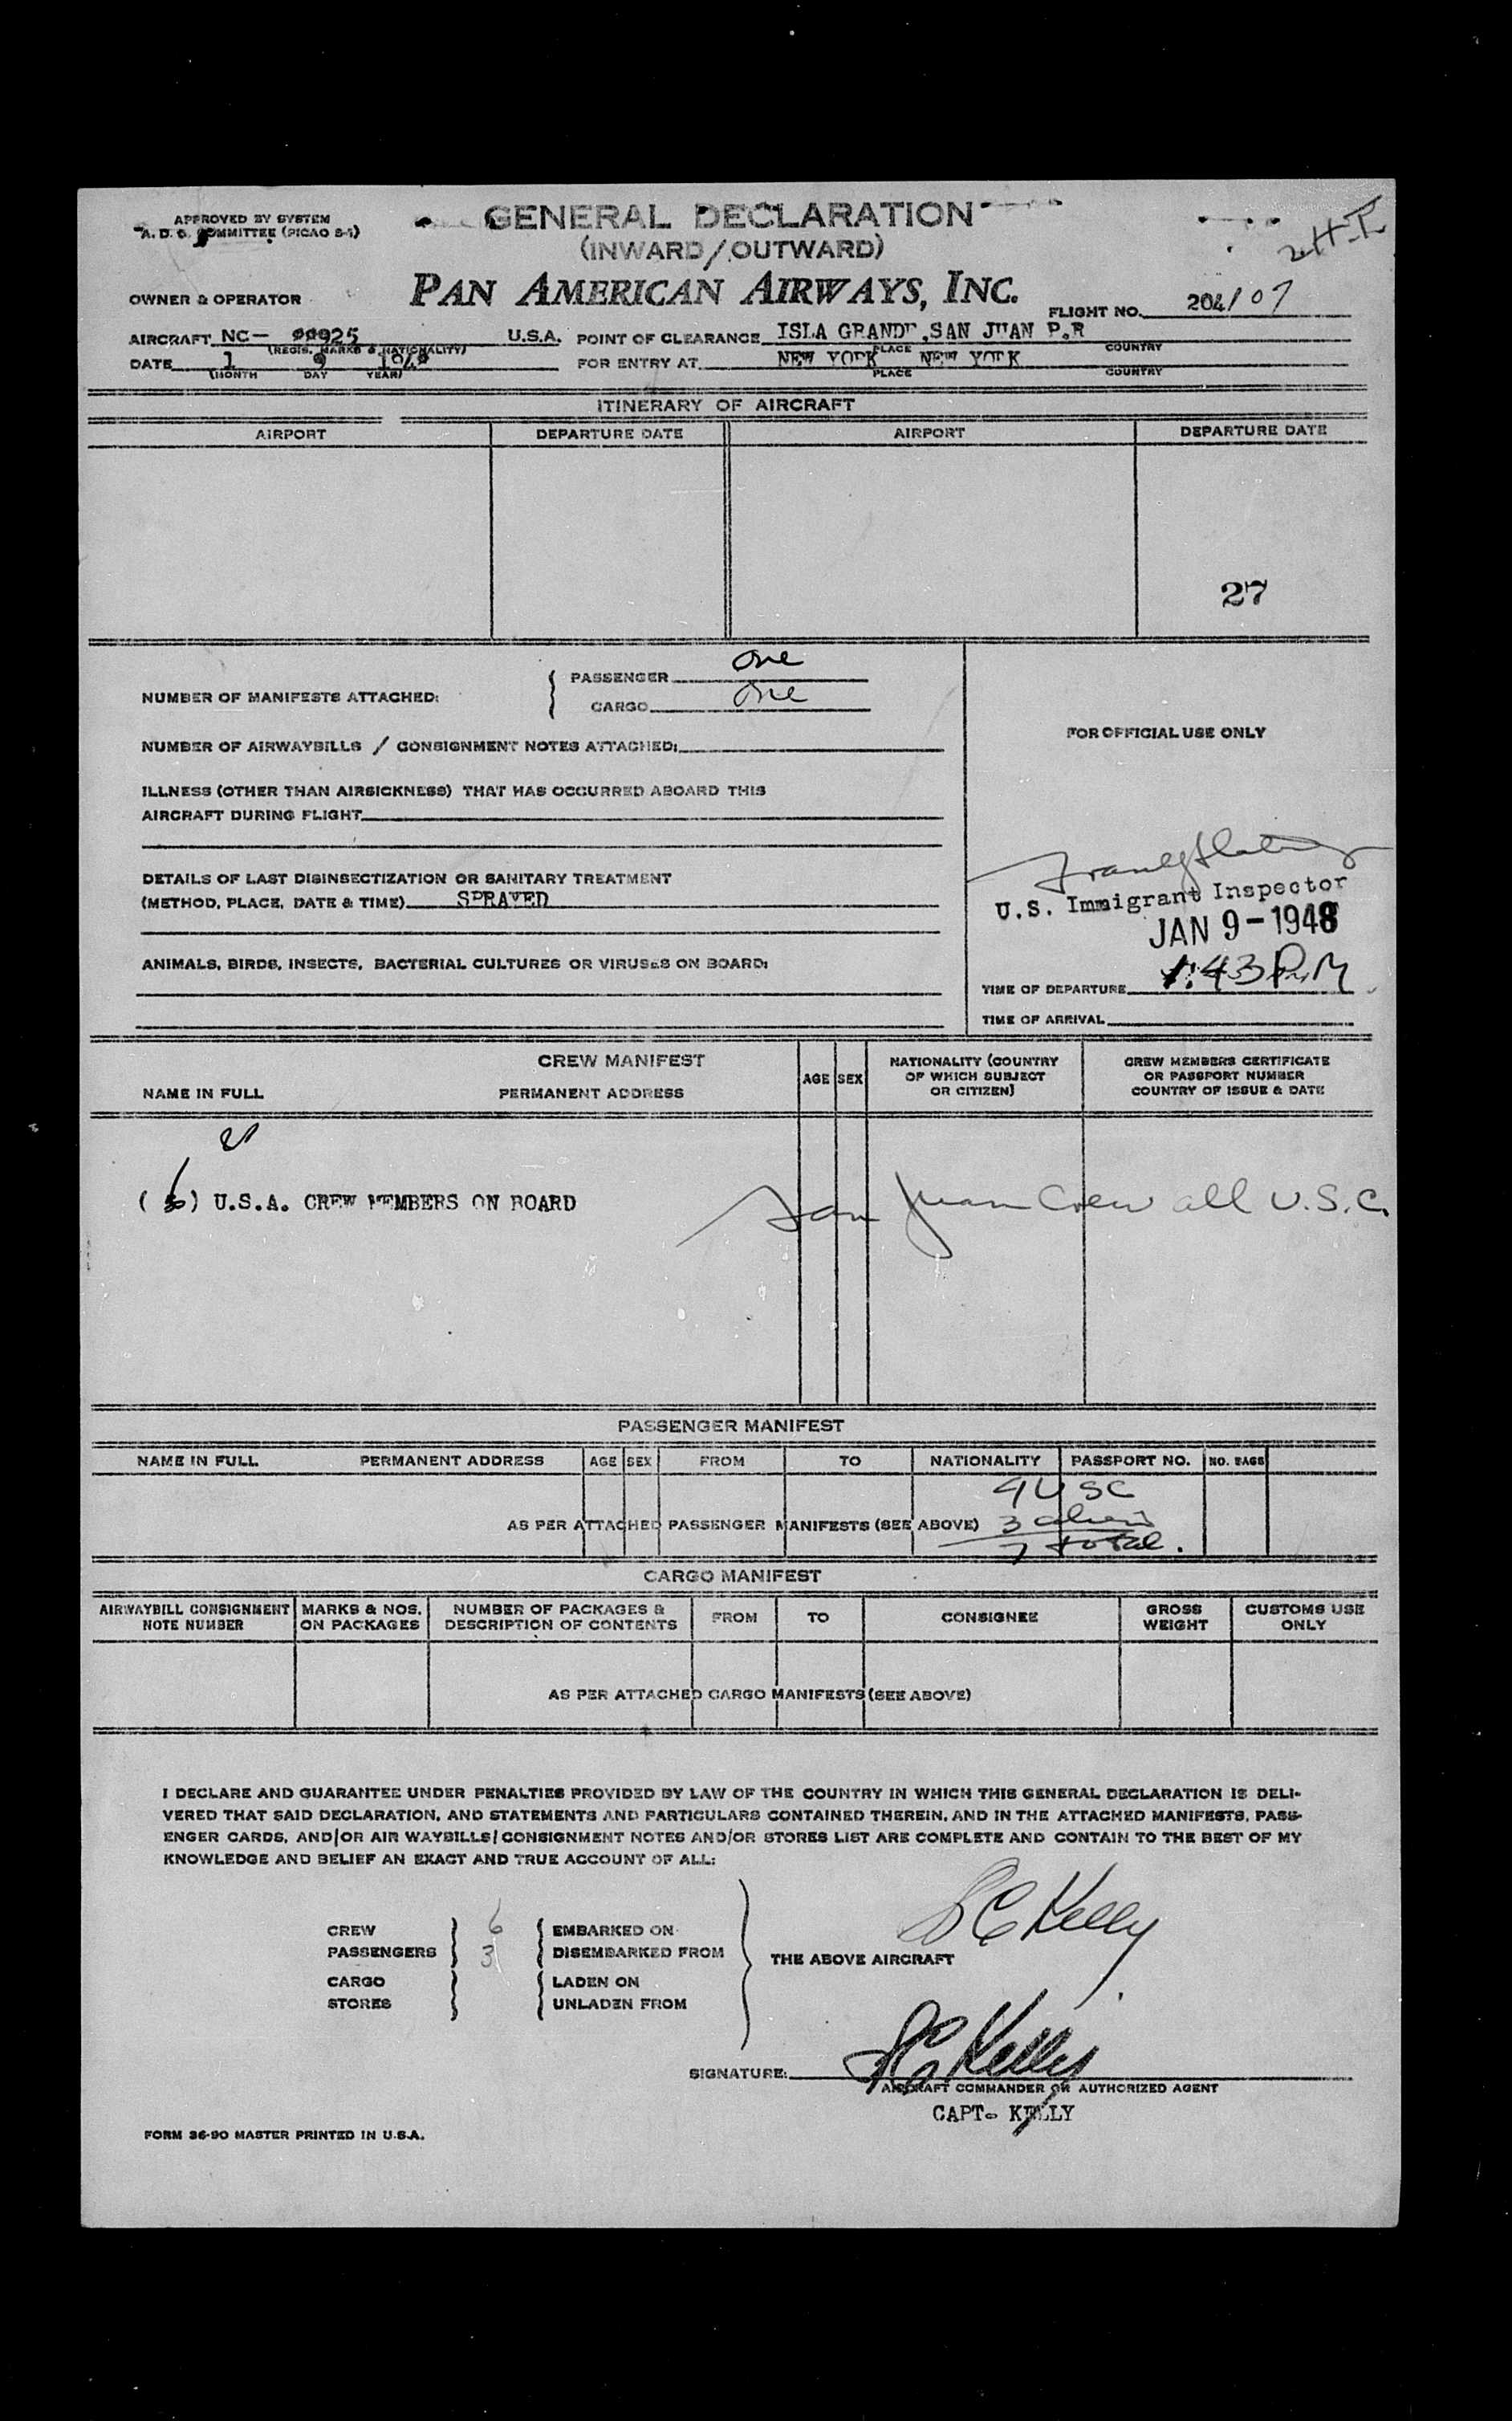 APPROVED BY SYSTEM
A. D. C. COMMITTEE (PICAO S-1)
GENERAL DECLARATION
(INWARD/OUTWARD)
PAN AMERICAN AIRWAYS, INC.
OWNER & OPERATOR
FLIGHT NO. 204/07
AIRCRAFT NC- 90925 U.S.A. POINT OF CLEARANCE ISLA GRANDE, SAN JUAN P.R
(REGIS. MARKS & NATIONALITY) PLACE COUNTRY
DATE 1 9 1948 FOR ENTRY AT NEW YORK NEW YORK
(MONTH DAY YEAR) PLACE COUNTRY
ITINERARY OF AIRCRAFT
AIRPORT DEPARTURE DATE AIRPORT DEPARTURE DATE
27
NUMBER OF MANIFESTS ATTACHED: PASSENGER one
CARGO one
NUMBER OF AIRWAYBILLS / CONSIGNMENT NOTES ATTACHED:
FOR OFFICIAL USE ONLY
ILLNESS (OTHER THAN AIRSICKNESS) THAT HAS OCCURRED ABOARD THIS
AIRCRAFT DURING FLIGHT
DETAILS OF LAST DISINSECTIZATION OR SANITARY TREATMENT
(METHOD, PLACE, DATE & TIME) SPRAYED
U.S. Immigrant Inspector
JAN 9-1948
ANIMALS, BIRDS, INSECTS, BACTERIAL CULTURES OR VIRUSES ON BOARD:
TIME OF DEPARTURE 1:43 P.M
TIME OF ARRIVAL
CREW MANIFEST
NAME IN FULL PERMANENT ADDRESS AGE SEX NATIONALITY (COUNTRY OF WHICH SUBJECT OR CITIZEN) CREW MEMBERS CERTIFICATE OR PASSPORT NUMBER COUNTRY OF ISSUE & DATE
(6) U.S.A. CREW MEMBERS ON BOARD San Juan Crew all U.S.C.
PASSENGER MANIFEST
NAME IN FULL PERMANENT ADDRESS AGE SEX FROM TO NATIONALITY PASSPORT NO. NO. BAGS
4 USC
AS PER ATTACHED PASSENGER MANIFESTS (SEE ABOVE) 3 aliens
7 total.
CARGO MANIFEST
AIRWAYBILL CONSIGNMENT NOTE NUMBER MARKS & NOS. ON PACKAGES NUMBER OF PACKAGES & DESCRIPTION OF CONTENTS FROM TO CONSIGNEE GROSS WEIGHT CUSTOMS USE ONLY
AS PER ATTACHED CARGO MANIFESTS (SEE ABOVE)
I DECLARE AND GUARANTEE UNDER PENALTIES PROVIDED BY LAW OF THE COUNTRY IN WHICH THIS GENERAL DECLARATION IS DELI-
VERED THAT SAID DECLARATION, AND STATEMENTS AND PARTICULARS CONTAINED THEREIN, AND IN THE ATTACHED MANIFESTS, PASS-
ENGER CARDS, AND/OR AIR WAYBILLS/CONSIGNMENT NOTES AND/OR STORES LIST ARE COMPLETE AND CONTAIN TO THE BEST OF MY
KNOWLEDGE AND BELIEF AN EXACT AND TRUE ACCOUNT OF ALL:
CREW 6 EMBARKED ON
PASSENGERS 3 DISEMBARKED FROM
THE ABOVE AIRCRAFT
CARGO LADEN ON
STORES UNLADEN FROM
Kelly
SIGNATURE: Kelly
AIRCRAFT COMMANDER OR AUTHORIZED AGENT
CAPT. KELLY
FORM 36-90 MASTER PRINTED IN U.S.A.